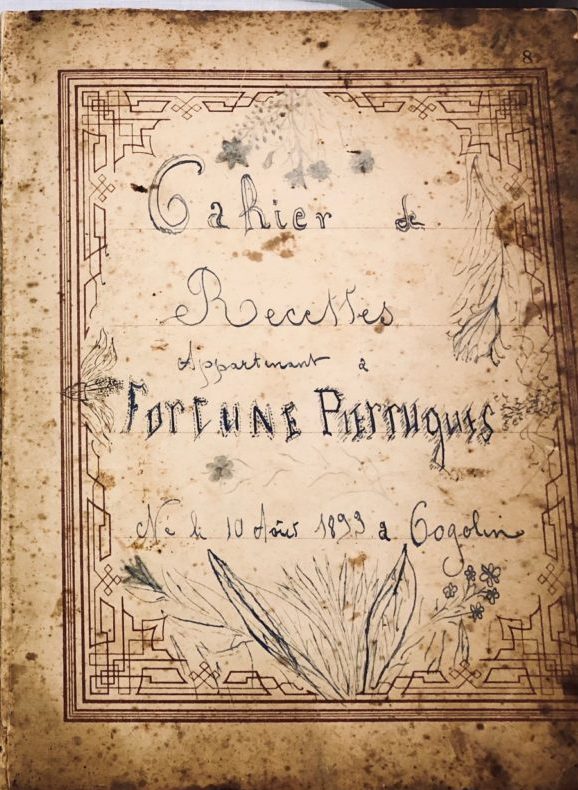 8
Cahier de
Recettes
Appartenant à
Fortuné Pierrugues
Né le 10 Août 1893 à Cogolin